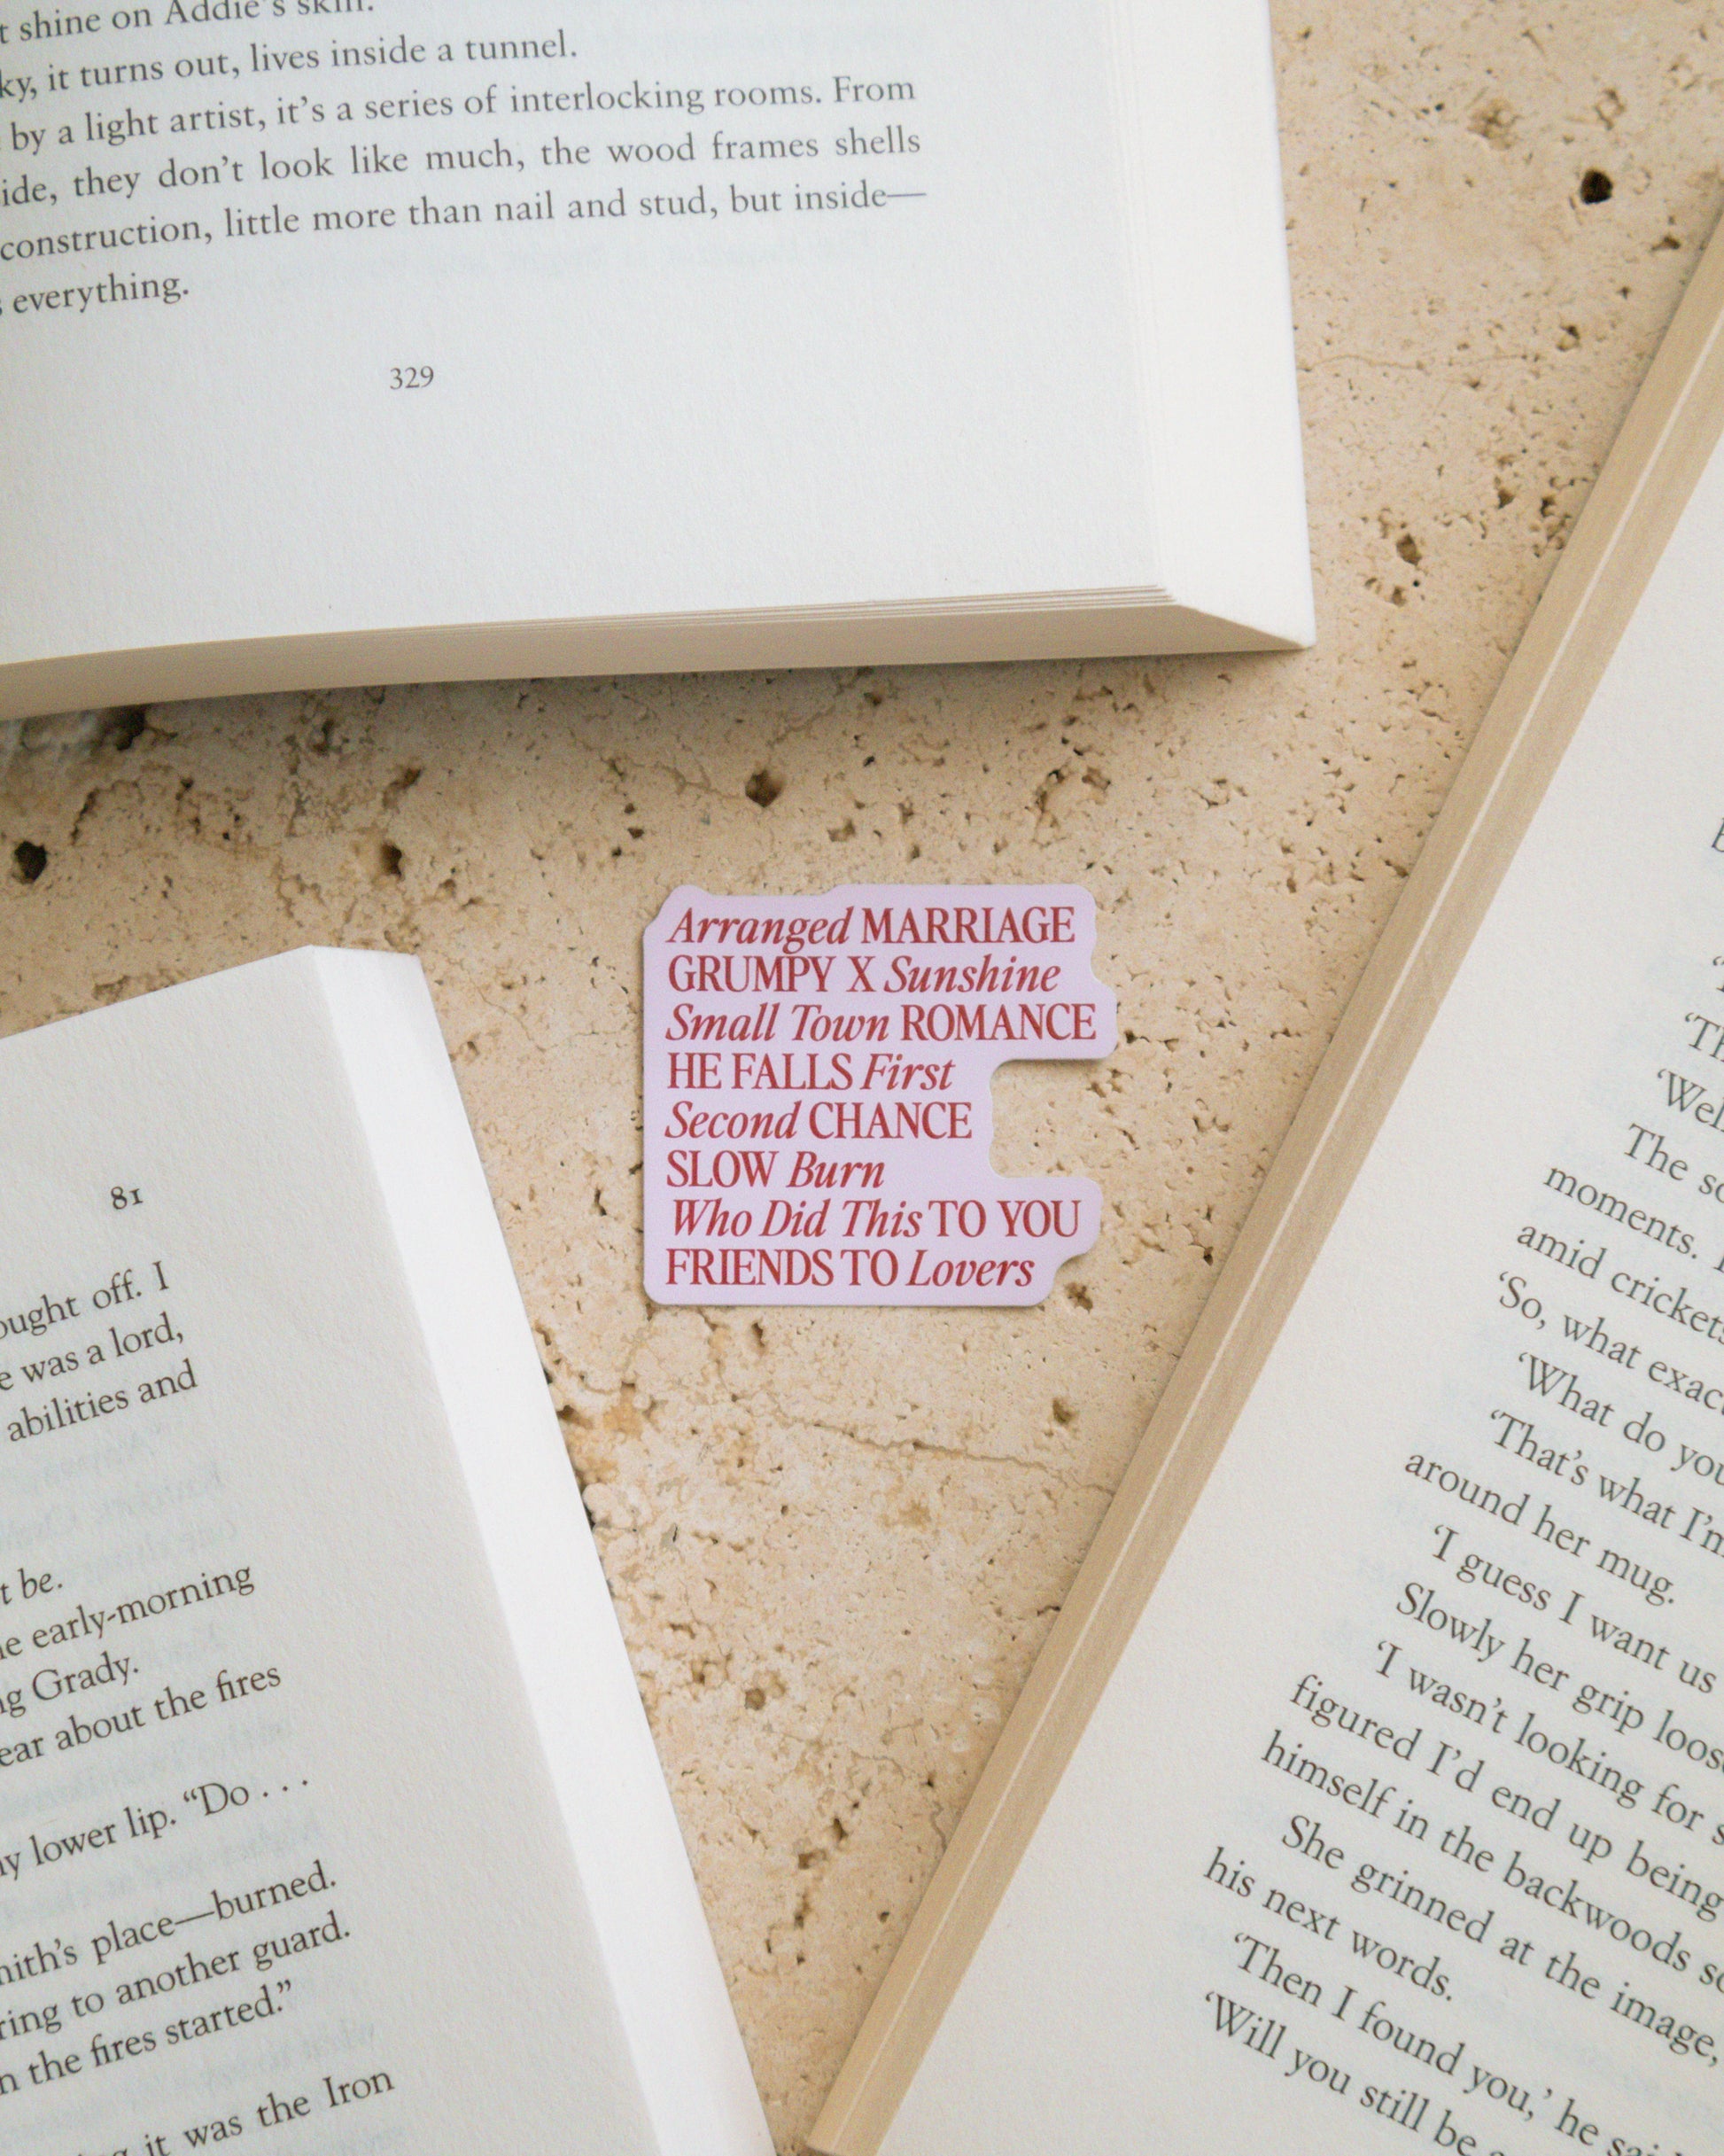 t shine on Addie's skin.
ky, it turns out, lives inside a tunnel.
by a light artist, it's a series of interlocking rooms. From
ide, they don't look like much, the wood frames shells
construction, little more than nail and stud, but inside—
s everything.
329
Arranged MARRIAGE
GRUMPY X Sunshine
Small Town ROMANCE
HE FALLS First
Second CHANCE
SLOW Burn
Who Did This TO YOU
FRIENDS TO Lovers
81
ought off. I
e was a lord,
abilities and
t be.
he early-morning
ng Grady.
ear about the fires
y lower lip. “Do . . .
mith's place—burned.
ring to another guard.
n the fires started.”
g it was the Iron
‘Th
‘Wel
The so
moments.
amid crickets
‘So, what exac
‘What do you
‘That's what I'm
around her mug.
‘I guess I want us
Slowly her grip loos
‘I wasn't looking for s
figured I'd end up being
himself in the backwoods so
She grinned at the image,
his next words.
‘Then I found you,’ he sai
‘Will you still be